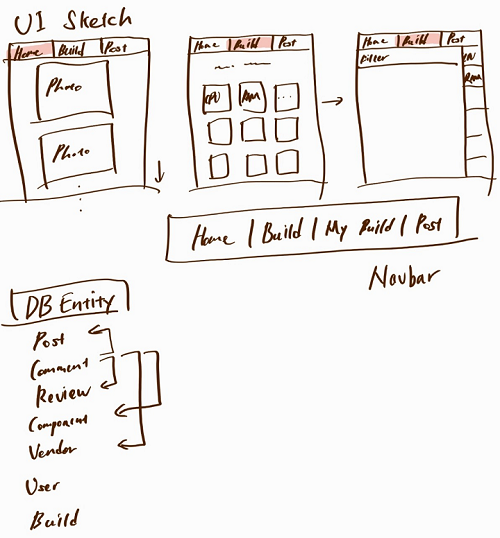 UI Sketch
Home Build Post
Photo
Photo
Home Build Post
CPU RAM ...
Home Build Post
Filter
RAM
Home | Build | My Build | Post
Navbar
DB Entity
Post
Comment
Review
Component
Vendor
User
Build